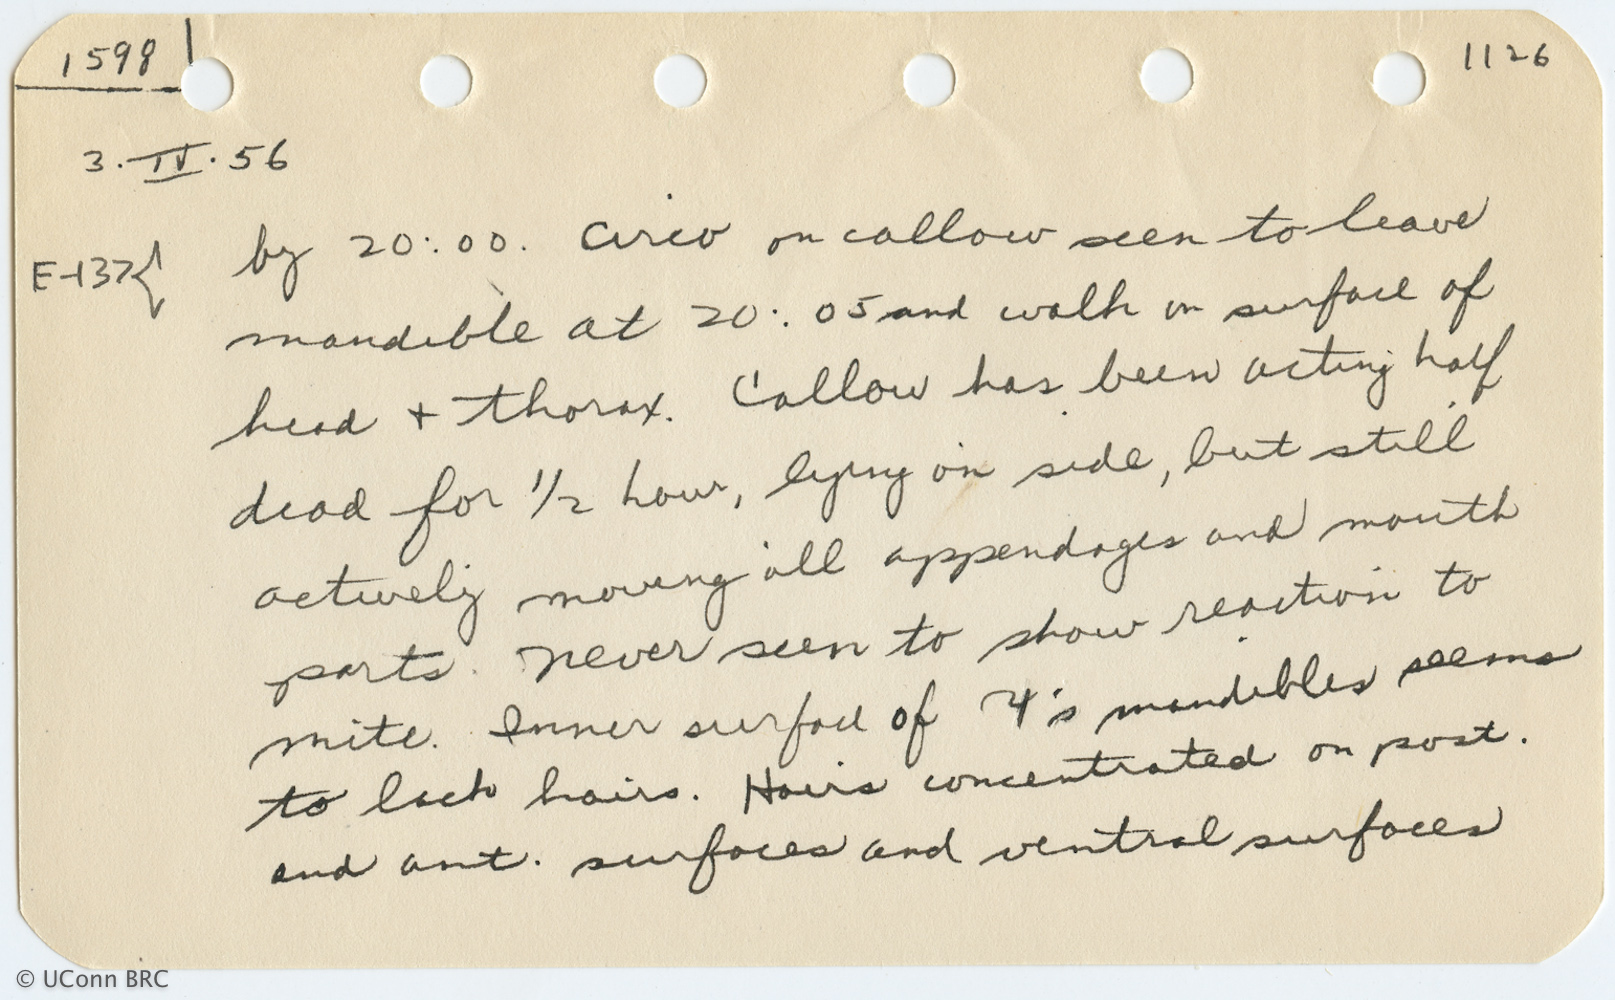 1598
1126
3.IV.56
E-137{
by 20:00. Circo on callow seen to leave
mandible at 20:05 and walk on surface of
head + thorax. Callow has been acting half
dead for 1/2 hour, lying on side, but still
actively moving all appendages and mouth
parts. Never seen to show reaction to
mite. Inner surface of 's mandibles seems
to lack hairs. Hairs concentrated on post.
and ant. surfaces and ventral surfaces
© UConn BRC